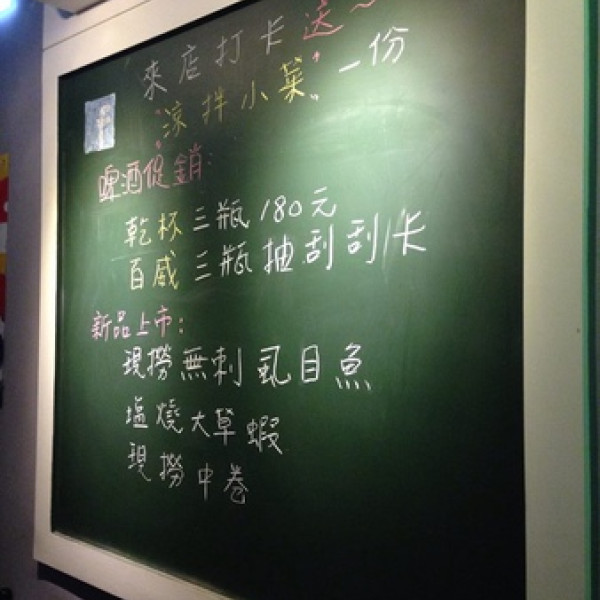 來店打卡送~
"涼拌小菜"一份
啤酒促銷:
乾杯三瓶180元
百威三瓶抽刮刮卡
新品上市:
現撈無刺虱目魚
塩燒大草蝦
現撈中卷